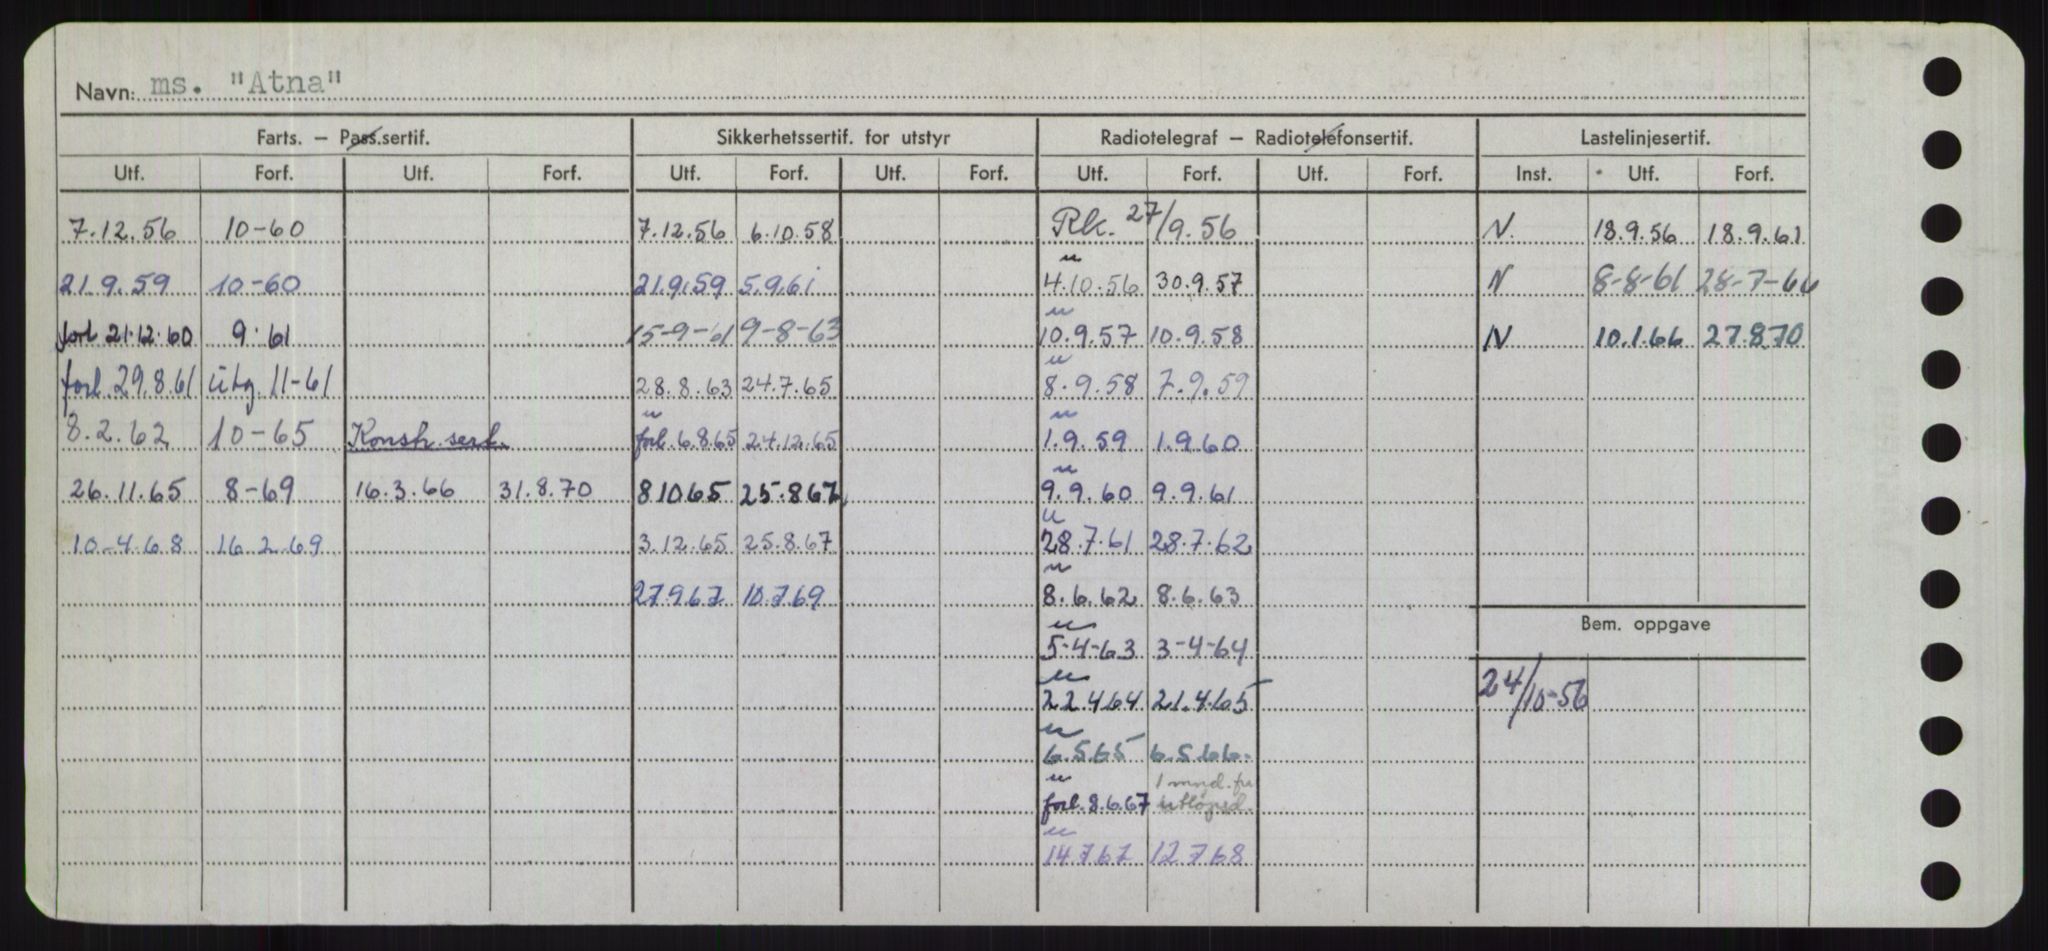 Navn: ms. "Atna"
Farts. — Pass.sertif. Sikkerhetssertif. for utstyr Radiotelegraf — Radiotelefonsertif. Lastelinjesertif.
Utf. Forf. Utf. Forf. Utf. Forf. Utf. Forf. Utf. Forf. Utf. Forf. Inst. Utf. Forf.
7.12.56 10-60 7.12.56 6.10.58 Rk. 27/9.56 N. 18.9.56 18.9.61
21.9.59 10-60 21.9.59 5.9.61 " 4.10.56 30.9.57 N 8-8-61 28-7-66
forl 21.12.60 9.61 15-9-61 9-8-63 " 10.9.57 10.9.58 N 10.1.66 27.8.70
forl. 29.8.61 utg. 11-61 28.8.63 24.7.65 " 8.9.58 7.9.59
8.2.62 10-65 Konstr. sert. " forl. 6.8.65 24.12.65 " 1.9.59 1.9.60
26.11.65 8-69 16.3.66 31.8.70 8 10 65 25.8.67 " 9.9.60 9.9.61
10-4.68 16.2.69 3.12.65 25.8.67 " 28.7.61 28.7.62
27.9.67 10.7.69 " 8.6.62 8.6.63
Bem. oppgave
" 5-4-63 3-4-64
24/10-56
" 22.4.64 21.4.65
" 6.5.65 6.5.66.
" forl. 8.6.67 1 mnd. fra utløpsd.
" 14.7.67 12.7.68